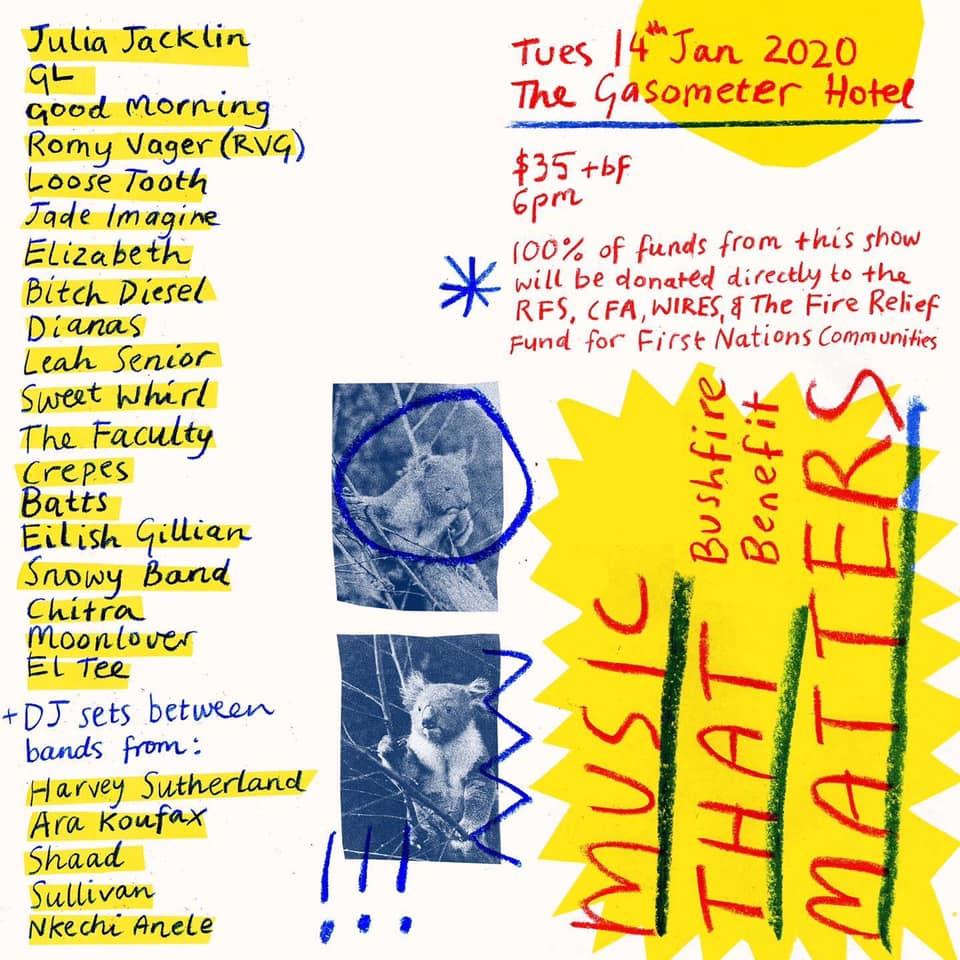 Julia Jacklin
GL
Good Morning
Romy Vager (RVG)
Loose Tooth
Jade Imagine
Elizabeth
Bitch Diesel
Dianas
Leah Senior
Sweet Whirl
The Faculty
Crepes
Batts
Eilish Gillian
Snowy Band
Chitra
Moonlover
El Tee
+ DJ sets between
bands from:
Harvey Sutherland
Ara Koufax
Shaad
Sullivan
Nkechi Anele
Tues 14th Jan 2020
The Gasometer Hotel
$35 +bf
6pm
* 100% of funds from this show
will be donated directly to the
RFS, CFA, WIRES, & The Fire Relief
Fund for First Nations Communities
!!!
MUSIC
THAT
MATTERS
Bushfire
Benefit